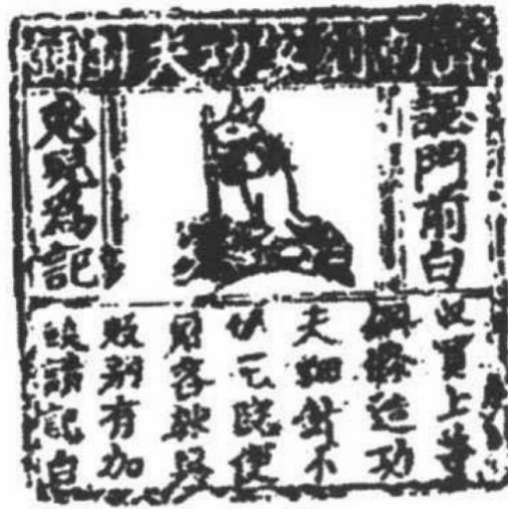 濟南劉家功夫針鋪
認門前白
兔兒為記
收買上等
鋼條造功
夫細針不
宅院使
用客轉與
販別有加
饒請記白